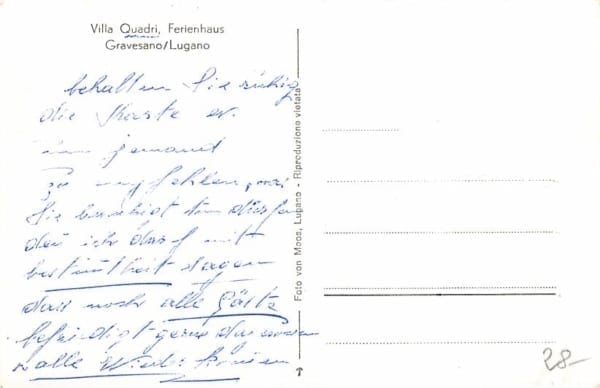 Villa Quadri, Ferienhaus
Gravesano/Lugano
behalten Sie ruhig
die Karte ev.
um jemand
zu empfehlen, was
Sie beruhigt tun dürfen
den ich darf mit
bestimtheit sagen
das noch alle Gäste
befriedigt gerne das
alle Wieder kommen
Foto von Moos, Lugano - Riproduzione vietata
28-